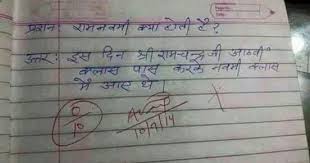 प्रशन: रामनवमी क्या होती है?
उत्तर: इस दिन श्री रामचन्द्र जी आठवी
क्लास पास करके नवमी क्लास
में आए थे
0
10
10/7/14